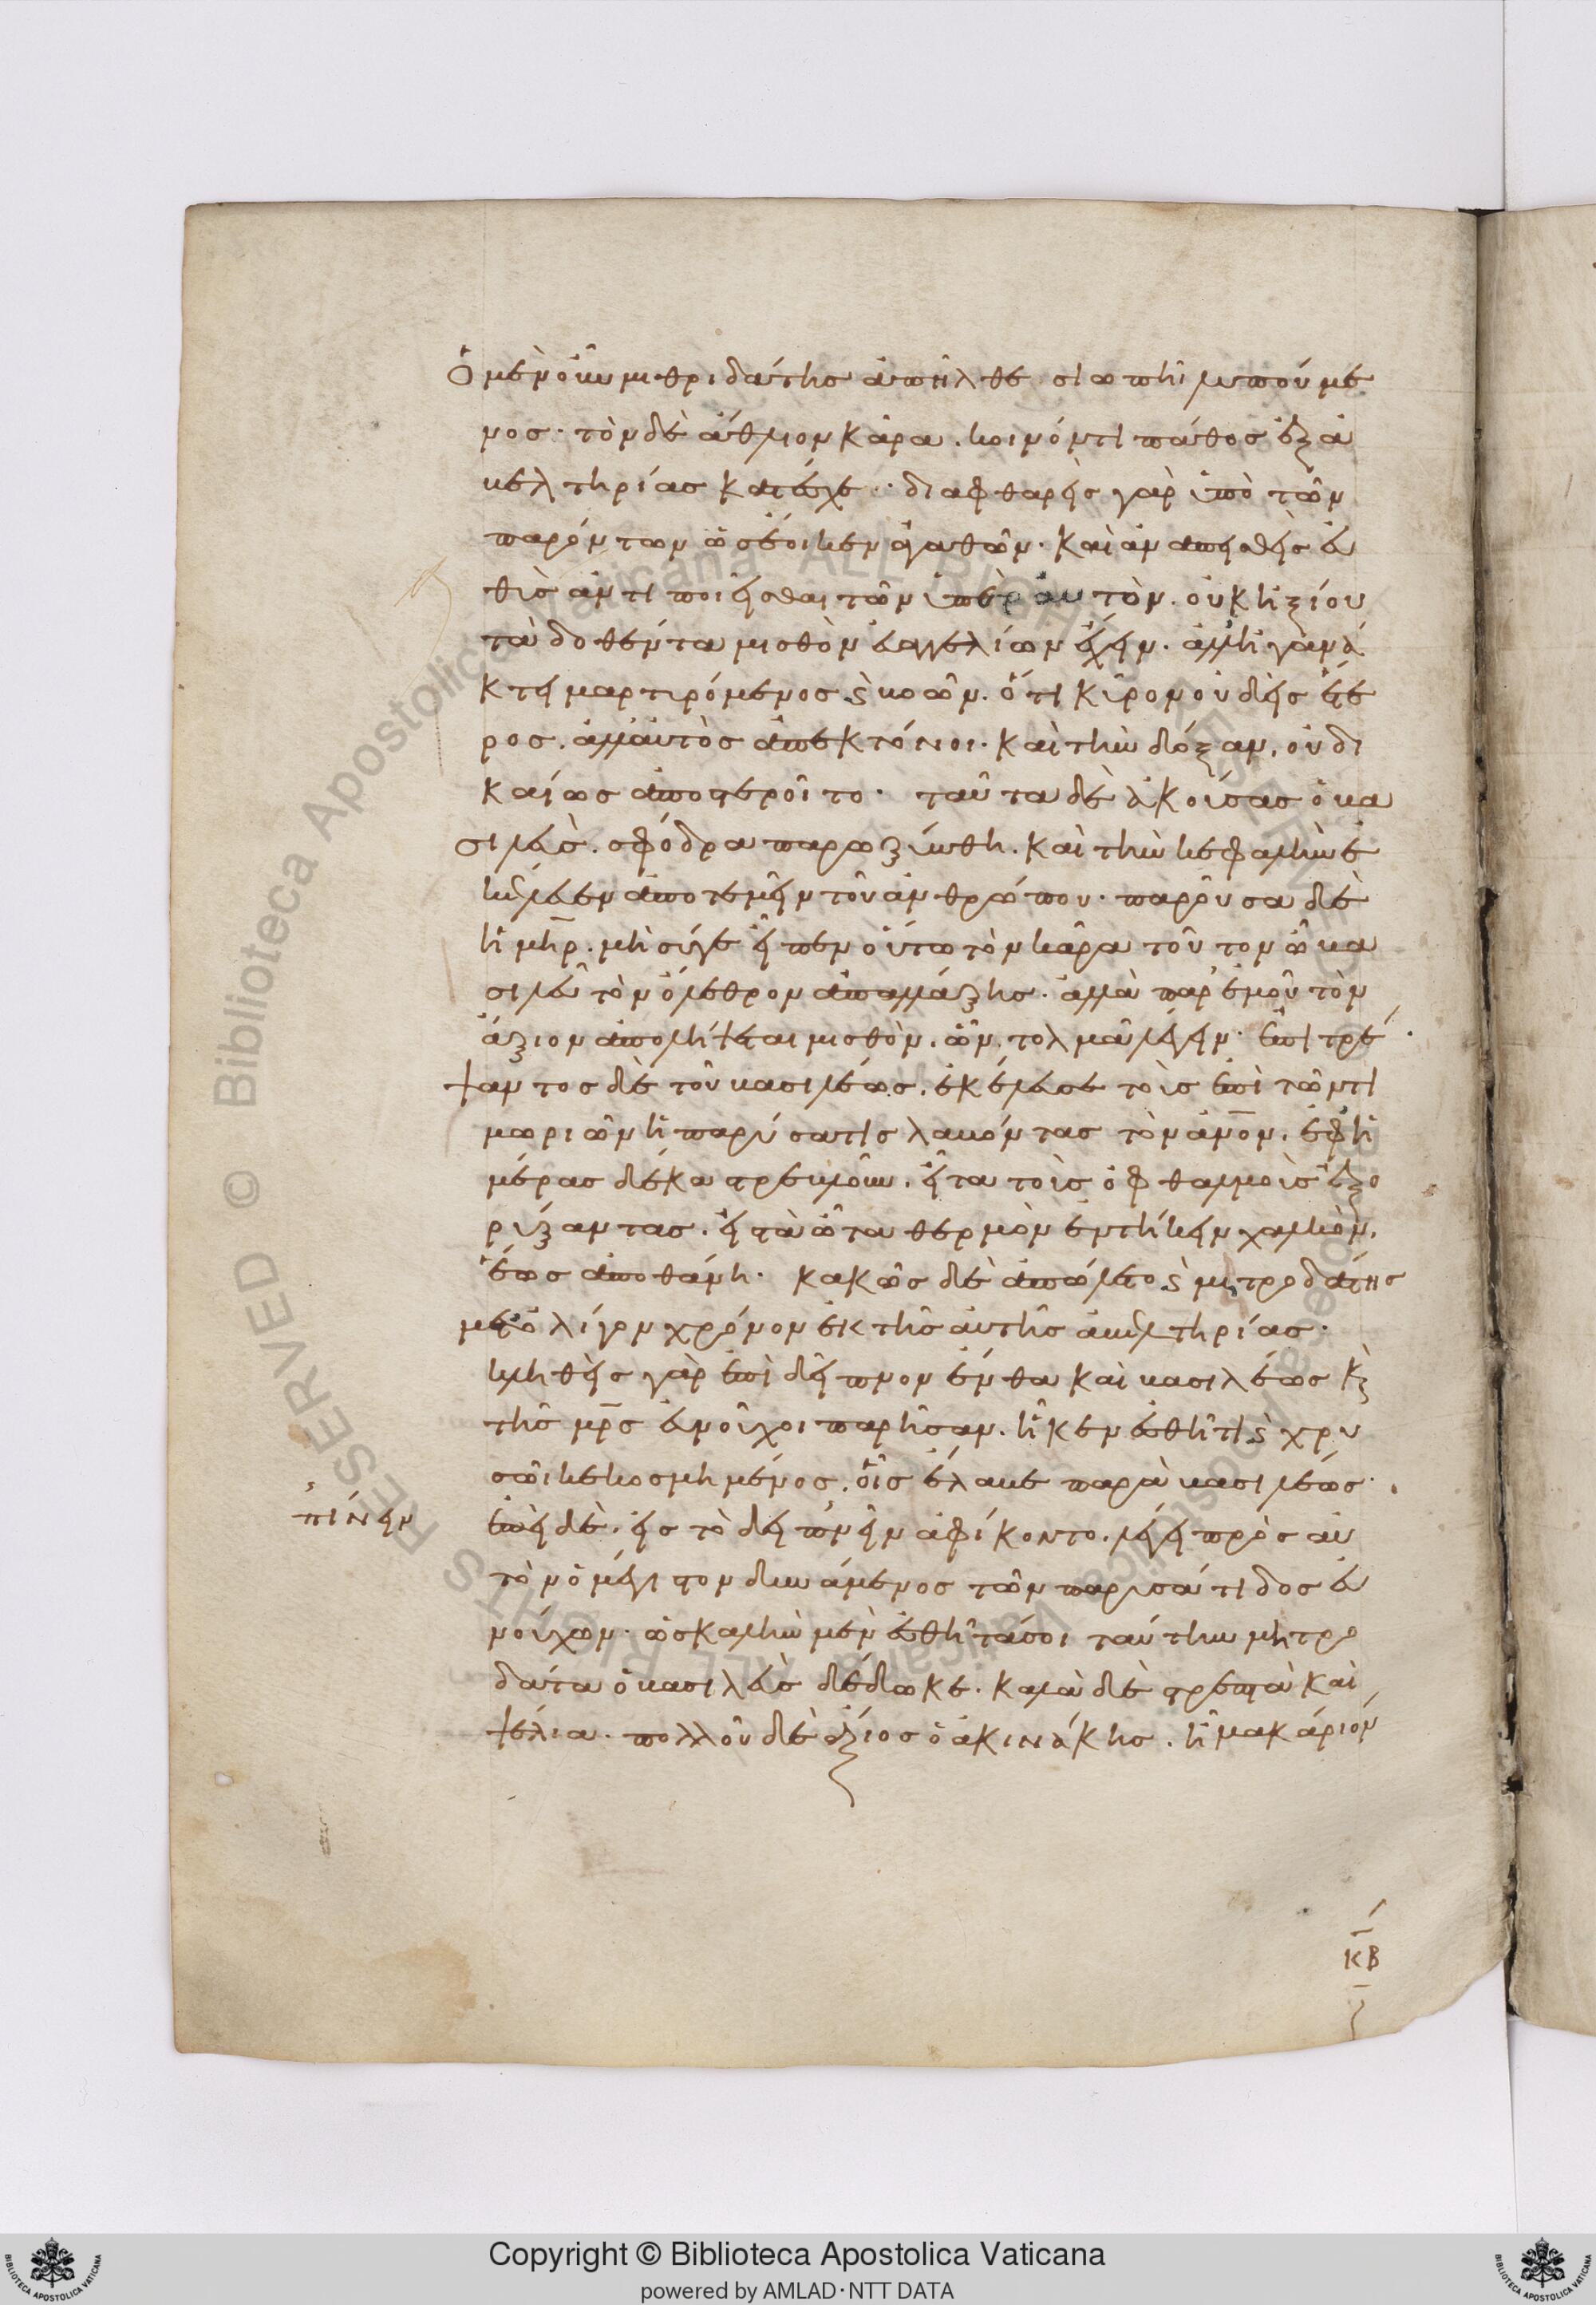 Ὁ μὲν οὖν μιθριδάτης ἀπῆλθε σιωπῆι λυπούμε
νος· τὸν δὲ ἄθλιον κᾶρα. κοινόν τι πάθος ἐξ ἀ
βελτηρίας κατέσχε· διαφθαρεὶς γὰρ ὑπὸ τῶν
παρόντων ὡς ἔοικεν ἀγαθῶν· καὶ ἀναπεισθεὶς εὐ
θὺς ἀντιποιεῖσθαι τῶν ὑπὲρ αὐτὸν. οὐκ ἠξίου
τὰ δοθέντα μισθὸν εὐαγγελίων ἔχειν· ἀλλ' ἠγανά
κτει μαρτυρόμενος καὶ βοῶν. ὅτι κῦρον οὐδεὶς ἕτε
ρος. ἀλλ' αὐτὸς ἀπεκτόνοι· καὶ τὴν δόξαν. οὐ δι
καίως ἀποστεροῖτο· ταῦτα δὲ ἀκούσας ὁ βα
σιλεὺς. σφόδρα παρωξύνθη. καὶ τὴν κεφαλὴν ἐ
κέλευσεν ἀποτεμεῖν τοῦ ἀνθρώπου· παροῦσα δὲ
ἡ μηρ. μὴ σύγε εἶπεν οὕτω τὸν κᾶρα τοῦτον ὦ βα
σιλεῦ τὸν ὄλεθρον ἀπαλλάξηις. ἀλλὰ παρ' ἐμοῦ τὸν
ἄξιον ἀπολήψεται μισθὸν. ὧν τολμᾶ λέγειν· ἐπιτρέ
ψαντος δὲ τοῦ βασιλέως. ἐκέλευσε τοὺς ἐπὶ τῶν τι
μωριῶν ἡ παρύσατις λαβόντας τὸν ἄνον. ἐφ' ἡ
μέρας δέκα στρεβλοῦν. εἶτα τοὺς ὀφθαλμοὺς ἐξο
ρύξαντας. εἰς τὰ ὦτα θερμὸν ἐντήκειν χαλκὸν.
ἕως ἀποθάνη· κακῶς δὲ ἀπώλετο καὶ μιτροδάτης
μετ' ὀλίγον χρόνον ἐκ τῆς αὐτῆς ἀβελτηρίας·
κληθεὶς γὰρ ἐπὶ δεῖπνον ἔνθα καὶ βασιλέως καὶ
τῆς μρς εὐνοῦχοι παρῆσαν. ἧκεν ἐσθῆτι καὶ χρυ
σῶι κεκοσμημένος. οἷς ἔλαβε παρὰ βασιλέως·
ἐπεὶ δὲ. εἰς τὸ δειπνεῖν ἀφίκοντο. λέγει πρὸς αὐ
πίνειν
τὸν ὁ μέγιστον δυνάμενος τῶν παρυσάτιδος εὐ
νούχων· ὡς καλὴν μὲν ἐσθῆτά σοι ταύτην μητρο
δάτα ὁ βασιλεὺς δέδωκε. καλὰ δὲ στρεπτὰ καὶ
ψέλια· πολλοῦ δὲ ἄξιος ὁ ἀκινάκης. ἦ μακάριόν
κβ